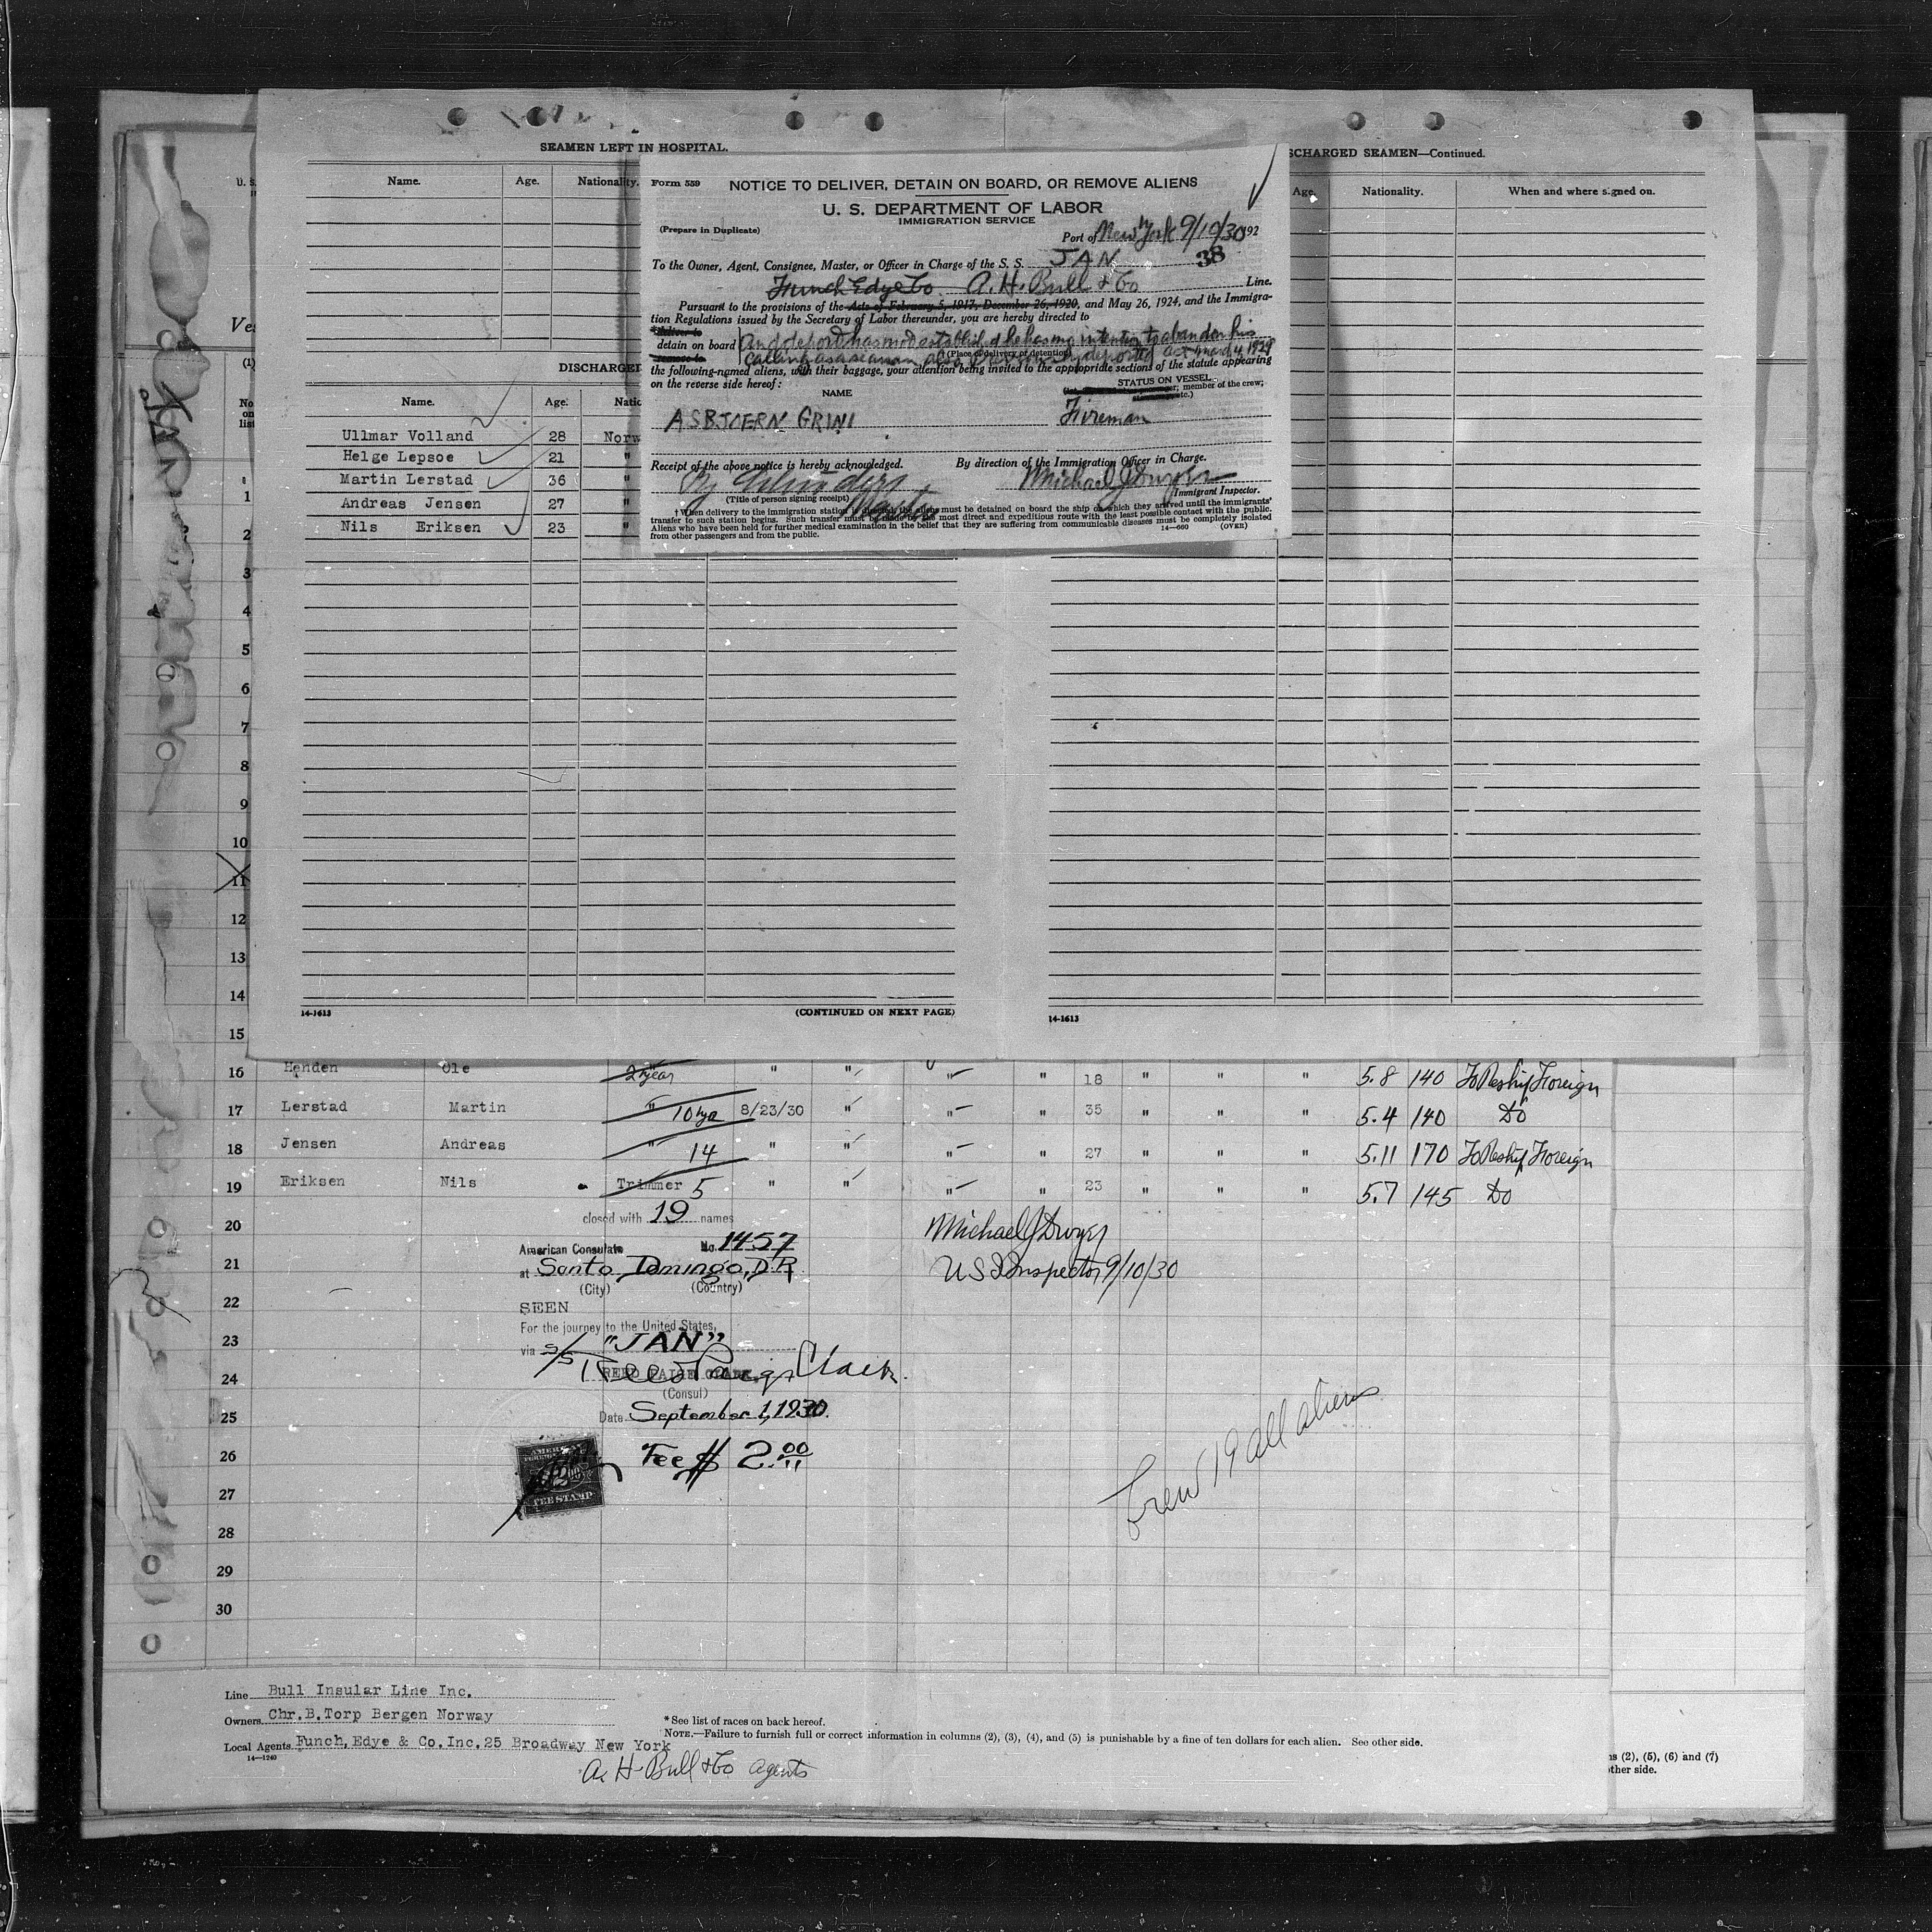 SEAMEN LEFT IN HOSPITAL.
Name. Age. Nationality.
DISCHARGE
Name. Age. Natio
Ullmar Volland 28 Norw
Helge Lepsoe 21 "
Martin Lerstad 36 "
Andreas Jensen 27 "
Nils Eriksen 23 "
14-1613 (CONTINUED ON NEXT PAGE)
Form 559
NOTICE TO DELIVER, DETAIN ON BOARD, OR REMOVE ALIENS
U. S. DEPARTMENT OF LABOR
IMMIGRATION SERVICE
(Prepare in Duplicate)
Port of New York 9/10/30 192
To the Owner, Agent, Consignee, Master, or Officer in Charge of the S. S. JAN 38
Funch Edye Co A. H. Bull & Co Line.
Pursuant to the provisions of the Acts of February 5, 1917, December 26, 1920, and May 26, 1924, and the Immigra-
tion Regulations issued by the Secretary of Labor thereunder, you are hereby directed to
*deliver to
detain on board and deport has not established he has no intention to abandon his
remove to calling as a seaman also previously deported act March 4, 1929
†(Place of delivery of detention)
the following-named aliens, with their baggage, your attention being invited to the appropriate sections of the statute appearing
on the reverse side hereof:
STATUS ON VESSEL
member of the crew;
etc.)
NAME
ASBJOERN GRINI Fireman
Receipt of the above notice is hereby acknowledged. By direction of the Immigration Officer in Charge.
By
(Title of person signing receipt)
Michael J Dwyer
Immigrant Inspector.
†When delivery to the immigration station is directed, the aliens must be detained on board the ship on which they arrived until the immigrants'
transfer to such station begins. Such transfer must be made by the most direct and expeditious route with the least possible contact with the public.
Aliens who have been held for further medical examination in the belief that they are suffering from communicable diseases must be completely isolated
from other passengers and from the public.
14—660 (OVER)
SCHARGED SEAMEN—Continued.
Age. Nationality. When and where signed on.
14-1613
U. S.
Ves
(1)
No
on
list
1
2
3
4
5
6
7
8
9
10
11
12
13
14
15
16 Henden Ole 2 year " " " " 18 " " " 5.8 140 To Reship Foreign
17 Lerstad Martin " 10 yrs 8/23/30 " " " 35 " " " 5.4 140 Do
18 Jensen Andreas " 14 " " " " 27 " " " 5.11 170 To Reship Foreign
19 Eriksen Nils Trimmer 5 " " " " 23 " " " 5.7 145 Do
20
21
22
23
24
25
26
27
28
29
30
closed with 19 names
American Consulate No. 1457
at Santo Domingo, D.R.
(City) (Country)
SEEN
For the journey to the United States,
via S/S "JAN"
Reed Paige Clark
REED PAIGE CLARK,
(Consul)
Date September 1, 1930.
Fee $ 2.00
AMERICAN
FEE STAMP
Michael J Dwyer
U S I Inspector 9/10/30
Crew 19 all aliens
Line Bull Insular Line Inc.
Owners Chr.B.Torp Bergen Norway
Local Agents Funch, Edye & Co.Inc.25 Broadway New York
14—1240
A. H. Bull & Co agents
* See list of races on back hereof.
NOTE.—Failure to furnish full or correct information in columns (2), (3), (4), and (5) is punishable by a fine of ten dollars for each alien. See other side.
ns (2), (5), (6) and (7)
other side.